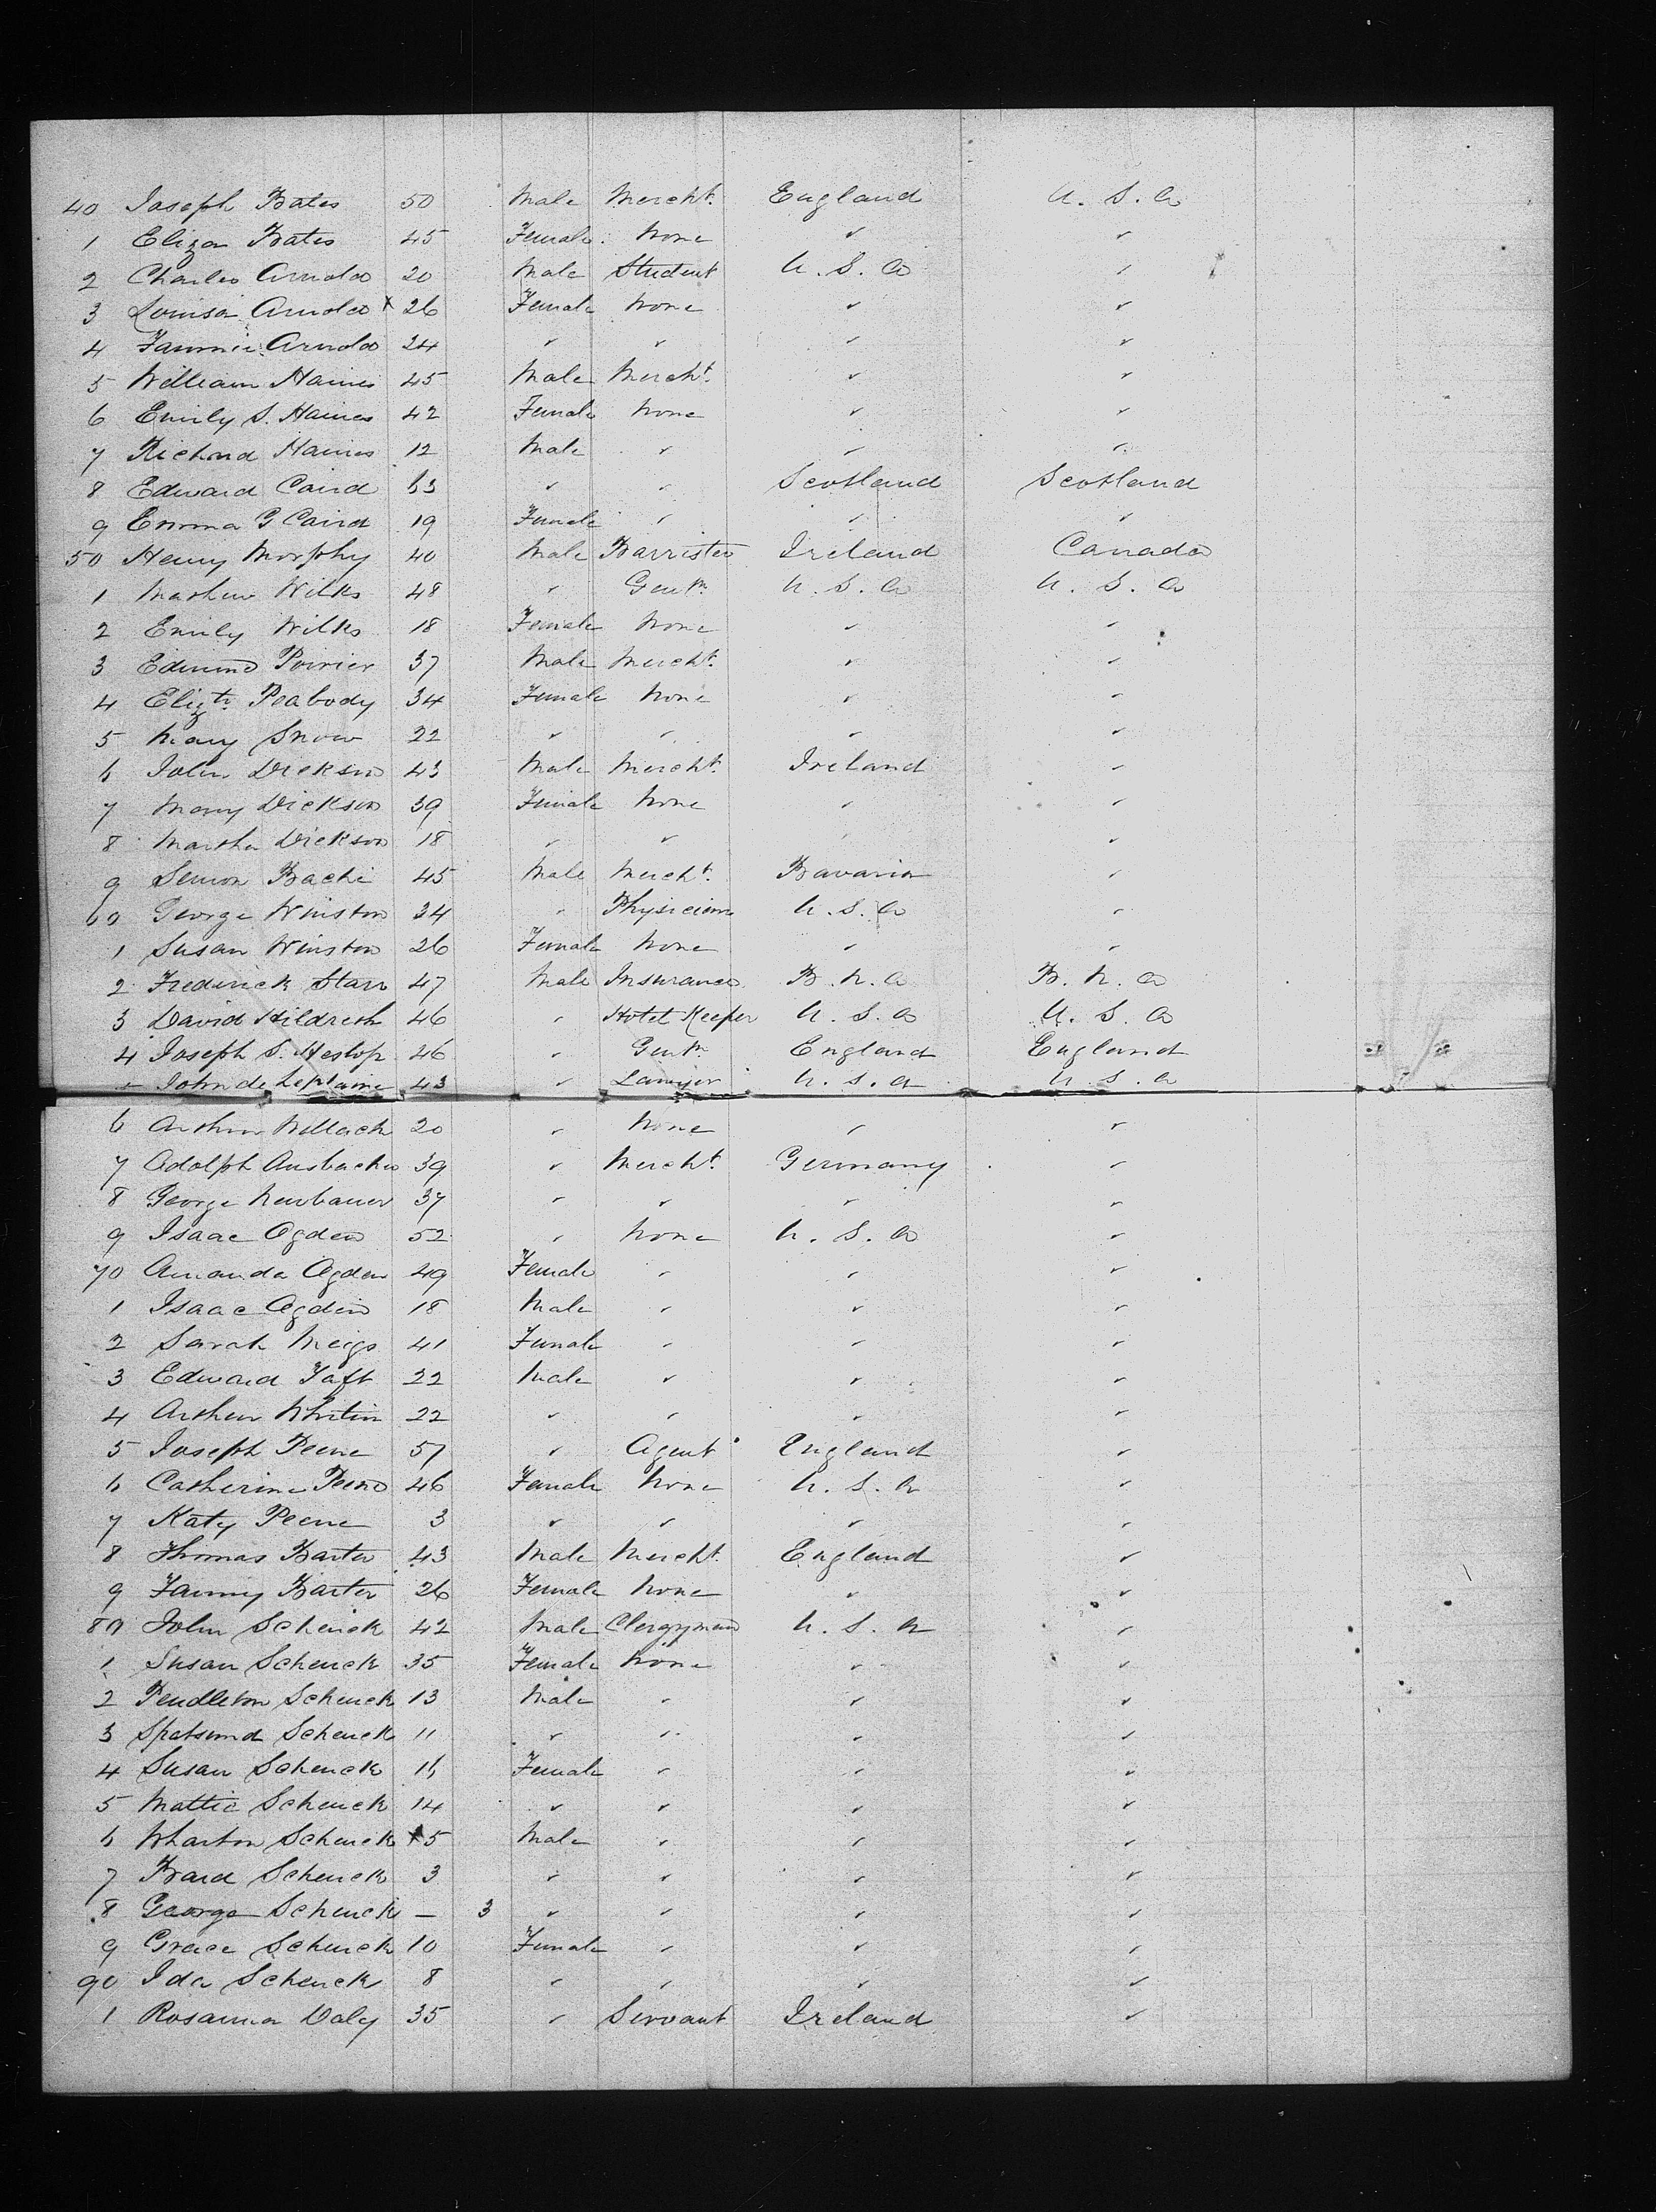 40 Joseph Bates 50 Male Mercht. England U. S. A
1 Eliza Bates 45 Female. None ✓ ✓
2 Charles Arnold 20 Male Student U. S. A ✓
3 Louisa Arnold x 26 Female None ✓ ✓
4 Fannie Arnold 24 ✓ ✓ ✓ ✓
5 William Haines 45 Male Mercht. ✓ ✓
6 Emily S. Haines 42 Female None ✓ ✓
7 Richard Haines 12 Male ✓ ✓ ✓
8 Edward Caird ✓ ✓ Scotland Scotland
9 Emma G Caird 19 Female ✓ ✓ ✓
50 Henry Morphy 40 Male Barrister Ireland Canada
1 Mathew Wilks 48 ✓ Gentn U. S. A U. S. A
2 Emily Wilks 18 Female None ✓ ✓
3 Edmund Poirier 37 Male Mercht. ✓ ✓
4 Elizth Peabody 34 Female None ✓ ✓
5 Mary Snow 22 ✓ ✓ ✓ ✓
6 John Dickson 43 Male Mercht. Ireland ✓
7 Mary Dickson 39 Female None ✓ ✓
8 Martha Dickson 18 ✓ ✓ ✓ ✓
9 Simon Bache 45 Male Mercht. Bavaria ✓
60 George Winston 34 ✓ Physician U. S. A ✓
1 Susan Winston 26 Female None ✓ ✓
2 Frederick Starr 47 Male Insurance B. N. A B. N. A
3 David Hildreth 46 ✓ Hotel Keeper U. S. A U. S. A
4 Joseph S. Heslop 46 ✓ Gentn England England
John de 43 ✓ Lawyer U. S. A U. S. A
6 Arthur Wellach 20 ✓ None ✓ ✓
7 Adolph Ansbacher 39 ✓ Mercht. Germany ✓
8 George Neubauer 37 ✓ ✓ ✓ ✓
9 Isaac Ogden 52 ✓ None U. S. A ✓
70 Amanda Ogden 49 Female ✓ ✓ ✓
1 Isaac Ogden 18 Male ✓ ✓ ✓
2 Sarah Meigs 41 Female ✓ ✓ ✓
3 Edward Taft 22 Male ✓ ✓ ✓
4 Arthur Whitin 22 ✓ ✓ ✓ ✓
5 Joseph Peene 57 ✓ Agent England ✓
6 Catherine Peene 46 Female None U. S. A ✓
7 Katy Peene 3 ✓ ✓ ✓ ✓
8 Thomas Barter 43 Male Mercht. England ✓
9 Fanny Barter 26 Female None ✓ ✓
80 John Schenck 42 Male Clergyman U. S. A ✓
1 Susan Schenck 35 Female None ✓ ✓
2 Pendleton Schenck 13 Male ✓ ✓ ✓
3 Schenck 11 ✓ ✓ ✓ ✓
4 Susan Schenck 16 Female ✓ ✓ ✓
5 Mattie Schenck 14 ✓ ✓ ✓ ✓
6 Wharton Schenck x 5 Male ✓ ✓ ✓
7 Bard Schenck 3 ✓ ✓ ✓ ✓
8 George Schenck — 3 ✓ ✓ ✓ ✓
9 Grace Schenck 10 Female ✓ ✓ ✓
90 Ida Schenck 8 ✓ ✓ ✓ ✓
1 Rosanna Daly 35 ✓ Servant Ireland ✓